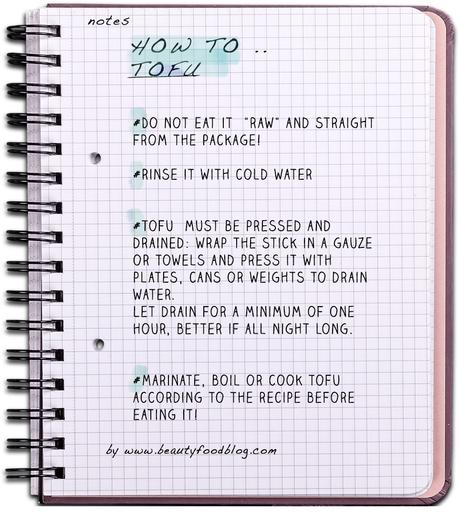 notes
HOW TO ..
TOFU
#DO NOT EAT IT "RAW" AND STRAIGHT
FROM THE PACKAGE!
#RINSE IT WITH COLD WATER
#TOFU MUST BE PRESSED AND
DRAINED: WRAP THE STICK IN A GAUZE
OR TOWELS AND PRESS IT WITH
PLATES, CANS OR WEIGHTS TO DRAIN
WATER.
LET DRAIN FOR A MINIMUM OF ONE
HOUR, BETTER IF ALL NIGHT LONG.
#MARINATE, BOIL OR COOK TOFU
ACCORDING TO THE RECIPE BEFORE
EATING IT!
by www.beautyfoodblog.com